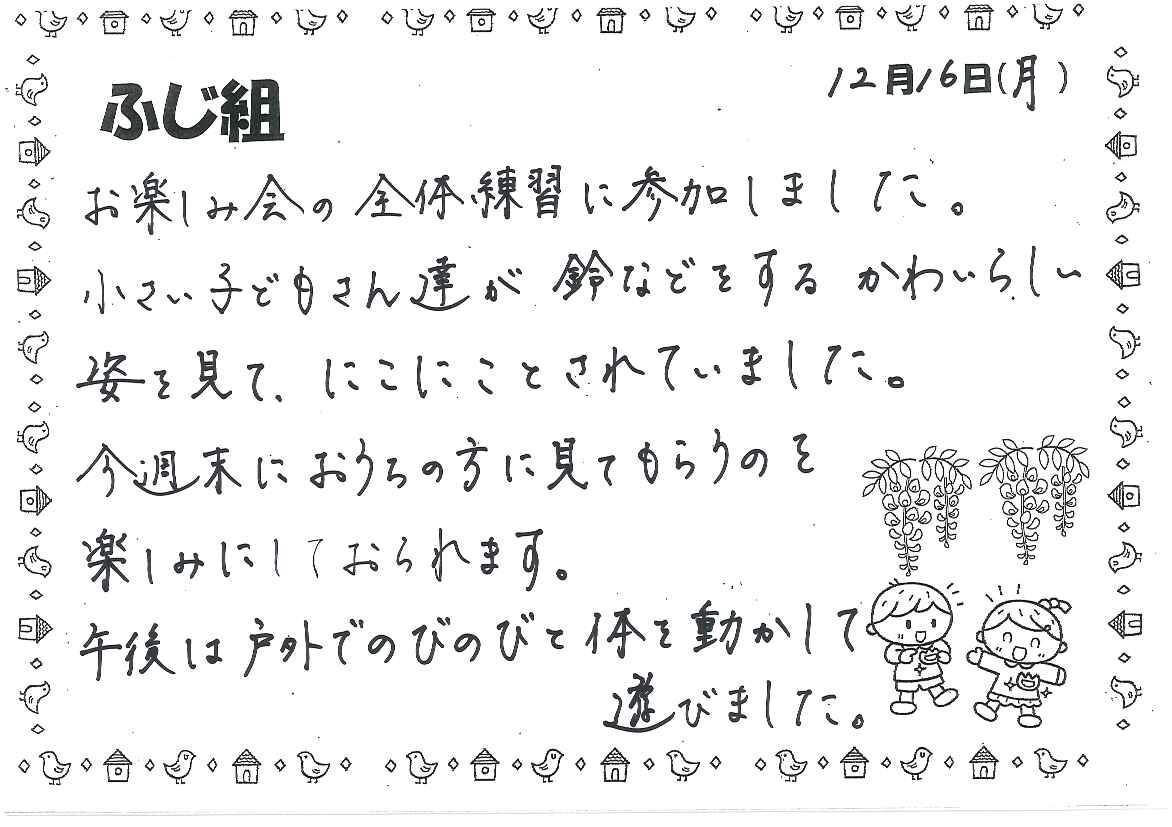 12月16日(月)
ふじ組
お楽しみ会の全体練習に参加しました。
小さい子どもさん達が鈴などをするかわいらしい
姿を見て、にこにことされていました。
今週末におうちの方に見てもらうのを
楽しみにしておられます。
午後は戸外でのびのびと体を動かして
遊びました。